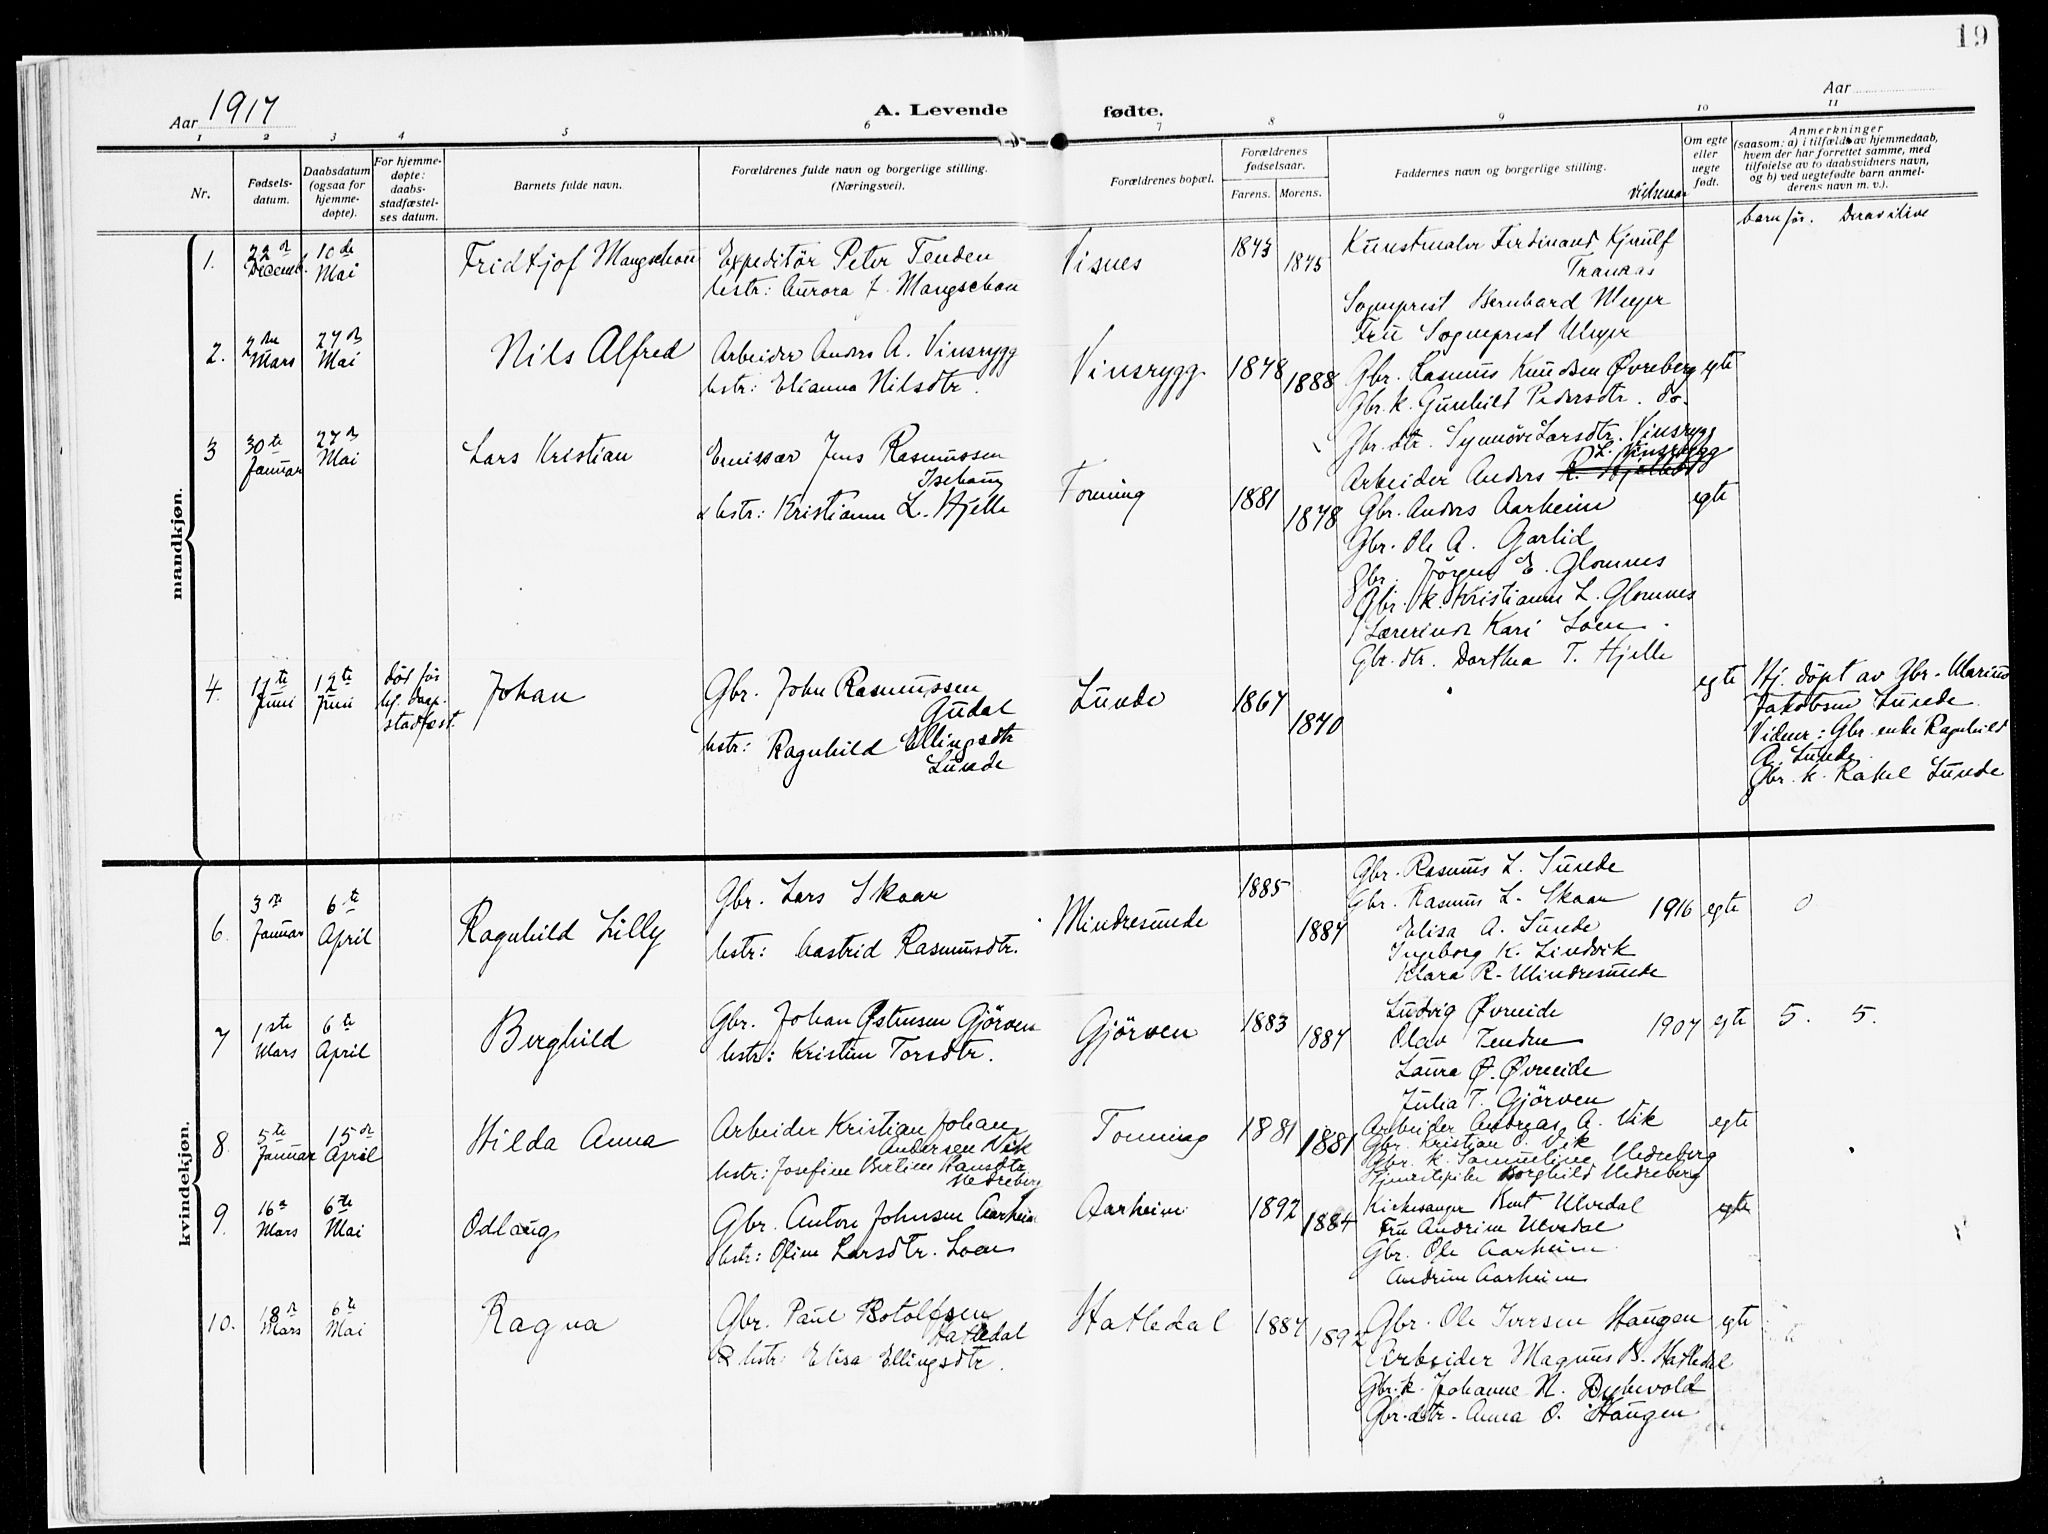 19
Aar 1917
A. Levende fødte.
Aar
1 2 3 4 5 6 7 8 9 10 11
Nr.
Fødsels-
datum.
Daabsdatum
(ogsaa for
hjemme-
døpte).
For hjemme-
døpte:
daabs-
stadfæstel-
ses datum.
Barnets fulde navn.
Forældrenes fulde navn og borgerlige stilling.
(Næringsvei).
Forældrenes bopæl.
Forældrenes
fødselsaar.
Farens. Morens.
Faddernes navn og borgerlige stilling.
Vielsesaar
Om egte
eller
uegte
født.
Anmerkninger
(saasom: a) i tilfælde av hjemmedaab,
hvem der har forrettet samme, med
tilføielse av to daabsvidners navn,
og b) ved uegtefødte barn anmel-
derens navn m. v.).
barn før. Derav ilive
mandkjøn.
1.
22de
Decemb.
10de
Mai
Fridtjof Mangschou
Expeditør Peter Tenden
hstr: Aurora F. Mangschou
Visnes
1873
1875
Kunstmaler Ferdinand Kjerulf
Tranaas
Sogneprest Bernhard Meyer
Fru Sogneprest Meyer
2.
2den
Mars
27de
Mai
Nils Alfred
Arbeider Anders A. Vinsrygg
hstr: Elianna Nilsdtr.
Vinsrygg
1878
1888
Gbr. Rasmus Knudsen Øvreberg
egte
Gbr. k. Gunhild Pedersdtr. do.
Gbr. dtr. Synnøve Larsdtr. Vinsrygg
Arbeider Anders L. Vinsrygg
3
30te
Januar
27de
Mai
Lars Kristian
Emissær Jens Rasmussen
hstr: Kristianne L. Hjelle
Tonning
1881
1878
Gbr. Anders Aarheim
egte
Gbr. Ole A. Garlid
Gbr. Jørgen E. Glomnes
Gbr. k. Kristianne L. Glomnes
Lærerinde Kari Loen.
Gbr. dtr. Dorthea T. Hjelle
4.
11te
Juni
12te
Juni
død før
stadfæst.
Johan
Gbr. John Rasmussen
Gudal
hstr: Ragnhild Ellingsdtr
Lunde
Lunde
1867
1870
egte
Hj. døpt av Gbr. Marius
Jakobsen Lunde.
Vidner: Gbr. enke Ragnhild
A. Lunde.
Gbr. k. Rakel Lunde
kvindekjøn.
6.
3die
Januar
6te
April
Ragnhild Lilly
Gbr. Lars Skaar
hstr: Aastrid Rasmusdtr.
Mindresunde
1885
1887
Gbr. Rasmus L. Sunde
Gbr. Rasmus L. Skaar
1916
egte
0
Elisa A. Sunde
Ingeborg K. Lindvik
Klara R. Mindresunde
7
1ste
Mars
6te
April
Berghild
Gbr. Johan Østensen Gjörven
hstr: Kristine Torsdtr.
Gjörven
1883
1887
Ludvig Øvreeide
1907
egte
5. 5.
Olav Tenden
Laura Ø. Øvreeide
Julia T. Gjörven
8.
5te
Januar
15de
April
Hilda Anna
Arbeider Kristian Johan
Andersen Vik
hstr: Josefine Bertine Hansdtr
Nedreberg
Tonning
1881
1881
Arbeider Andreas A. Vik
egte
Gbr. Kristian J. Vik
Gbr. k. Samueline Nedreberg
Tjenestepike Borghild Nedreberg
9.
16de
Mars
6te
Mai
Odlaug
Gbr. Anton Johnsen Aarheim
hstr: Oline Larsdtr. Loen
Aarheim
1892
1884
Kirkesanger Bent Ulvedal
egte
Fru Andrine Ulvedal
Gbr. Ole Aarheim
Andrine Aarheim
10.
18de
Mars
6te
Mai
Ragna
Gbr. Paul Botolfsen
Hatledal
hstr: Elisa Ellingsdtr.
Hatledal
1887
1892
Gbr. Ole Iversen Haugen
egte
Arbeider Magnus B. Hatledal
Gbr. k. Johanne N. Dybvold
Gbr. dtr. Anna O. Haugen